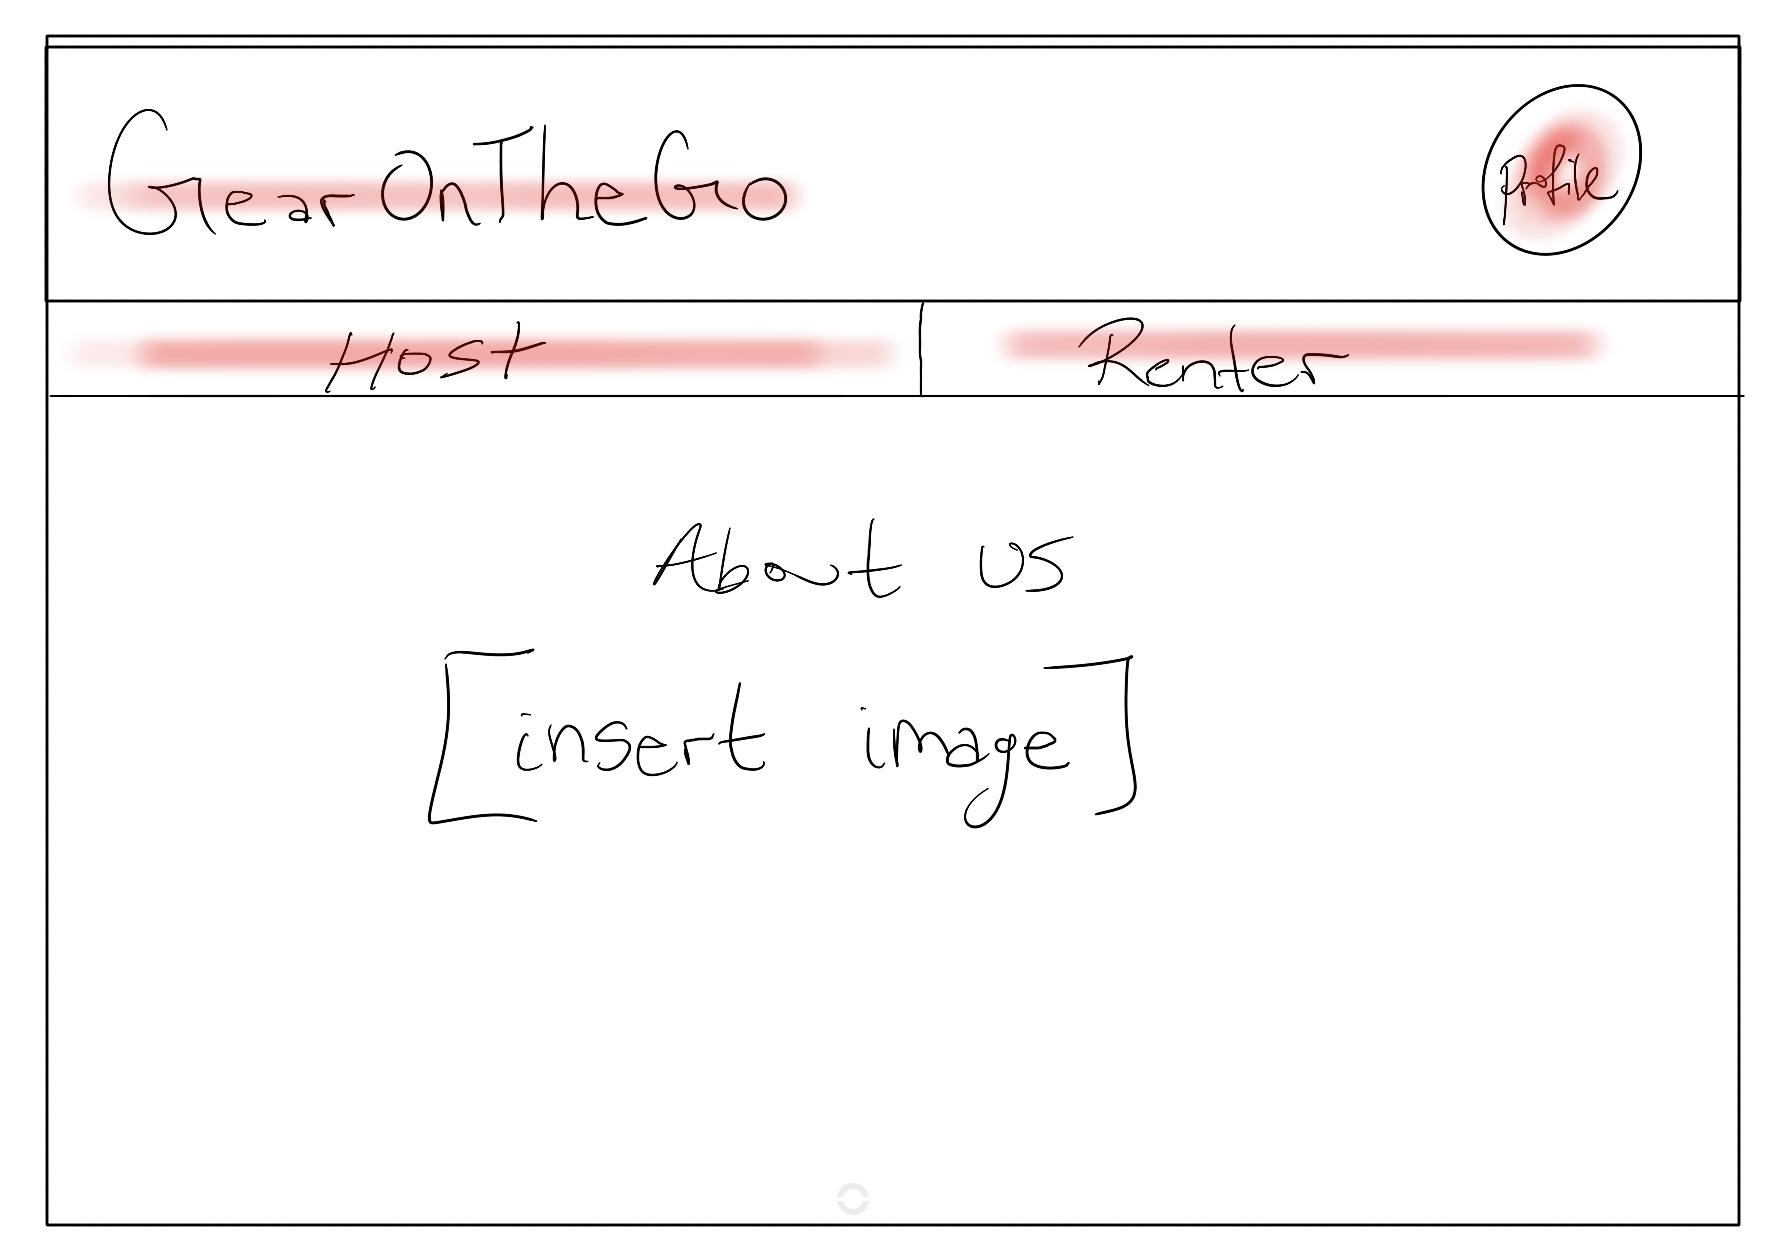 GearOnTheGo
Profile
Host
Renter
About us
[insert image]